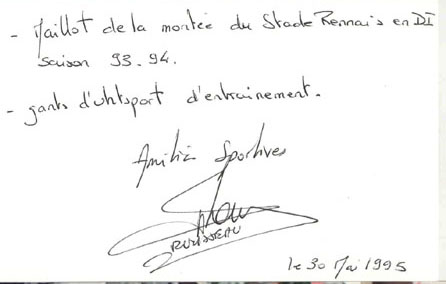 - Maillot de la montée du Stade Rennais en DI
saison 93.94.
- gants d'uhlsport d'entrainement.
Amitié Sportives
ROUSSEAU
le 30 Mai 1995